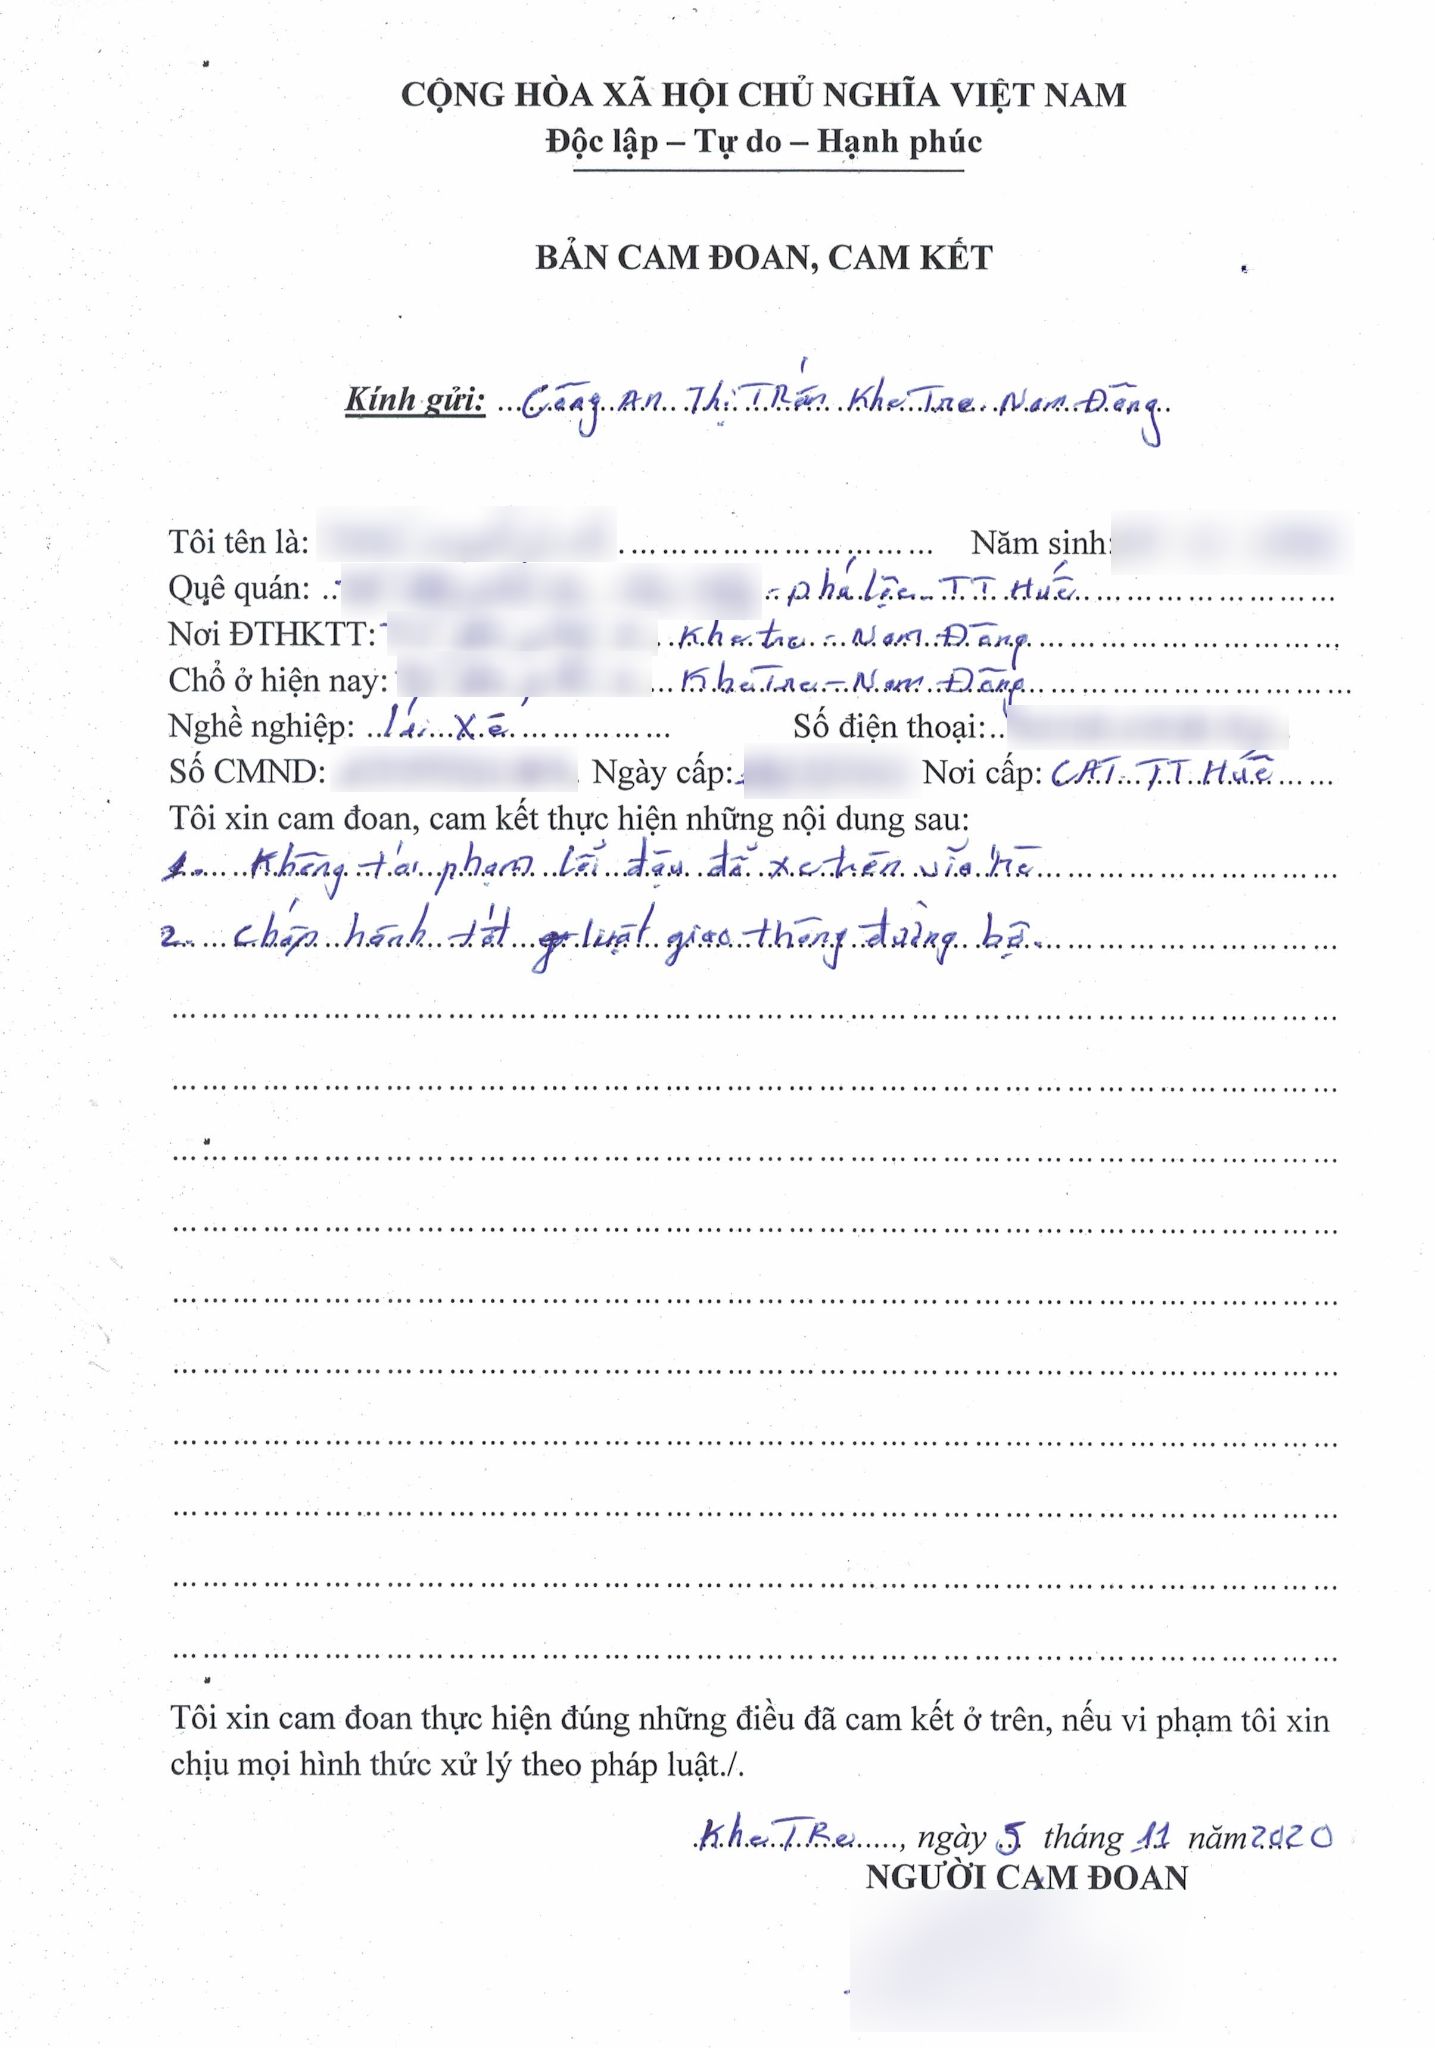 CỘNG HÒA XÃ HỘI CHỦ NGHĨA VIỆT NAM
Độc lập – Tự do – Hạnh phúc
BẢN CAM ĐOAN, CAM KẾT
Kính gửi: Công An Thị Trấn Khe Tre Nam Đông
Tôi tên là: Năm sinh:
Quê quán: phú lộc TT Huế
Nơi ĐTHKTT: Khe tre - Nam Đông
Chổ ở hiện nay: Khe Tre - Nam Đông
Nghề nghiệp: lái xế Số điện thoại:
Số CMND: Ngày cấp: Nơi cấp: CAT. TT Huế
Tôi xin cam đoan, cam kết thực hiện những nội dung sau:
1. Không tái phạm lỗi đậu đỗ xe trên vĩa hè
2. chấp hành tốt luật giao thông đường bộ.
Tôi xin cam đoan thực hiện đúng những điều đã cam kết ở trên, nếu vi phạm tôi xin
chịu mọi hình thức xử lý theo pháp luật./.
Khe TRe, ngày 5 tháng 11 năm 2020
NGƯỜI CAM ĐOAN